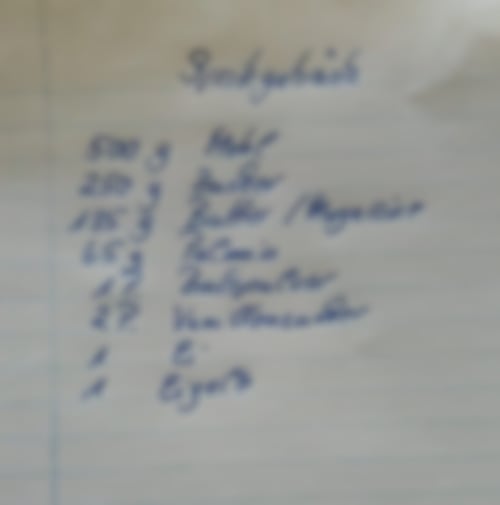 Spritzgebäck
500 g Mehl
250 g Zucker
g Butter / Margarine
65 g Palmin
1 P. Backpulver
2 P. Vanillezucker
1 Ei
1 Eigelb